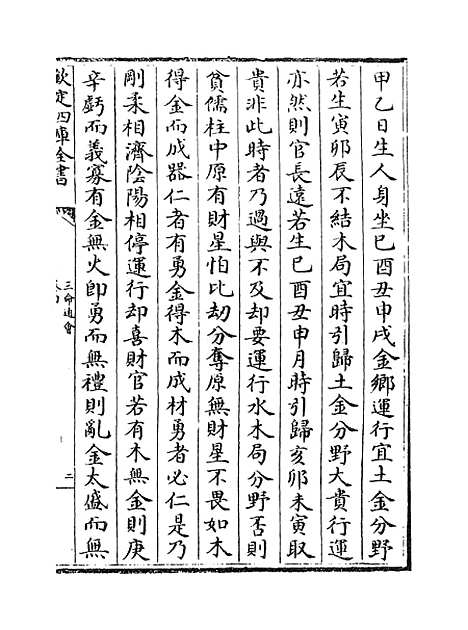 甲乙日生人身坐巳酉丑申戌金鄉運行宜土金分野
若生寅卯辰不結木局宜時引歸土金分野大貴行運
亦然則官長遠若生巳酉丑申月時引歸亥卯未寅取
貴非此時者乃過與不及却要運行水木局分野否則
貧儒柱中原有財星怕比刼分奪原無財星不畏如木
得金而成器仁者有勇金得木而成材勇者必仁是乃
剛柔相濟陰陽相停運行却喜財官若有木無金則庚
辛虧而義寡有金無火卽勇而無禮則亂金太盛而無
欽定四庫全書
三命通會
二